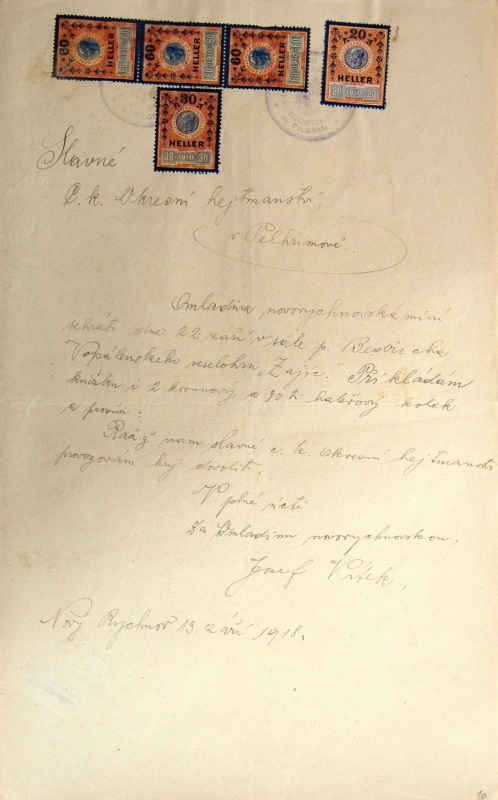 60 60 60 20
HELLER HELLER HELLER
1910 20 1910 20
30
HELLER
30 1910 30
PILGRAM
Slavné
C. k. Okresní hejtmanství,
v Pelhřimově.
Omladina novorychnovská míní
sehráti dne 22 září v sále p. Bedřicha
Vopálenského veselohru „Zajíc." Přikládám
knížku i 2 korunový a 30 ti haléřový kolek
a prosím:
Račiž nám slavné c. k. Okresní hejtmanství
provozování hry dovoliti.
V plné úctě
Za Omladinu novorychnovskou:
Josef Vítek,
Nový Rychnov 13. září 1918.
10